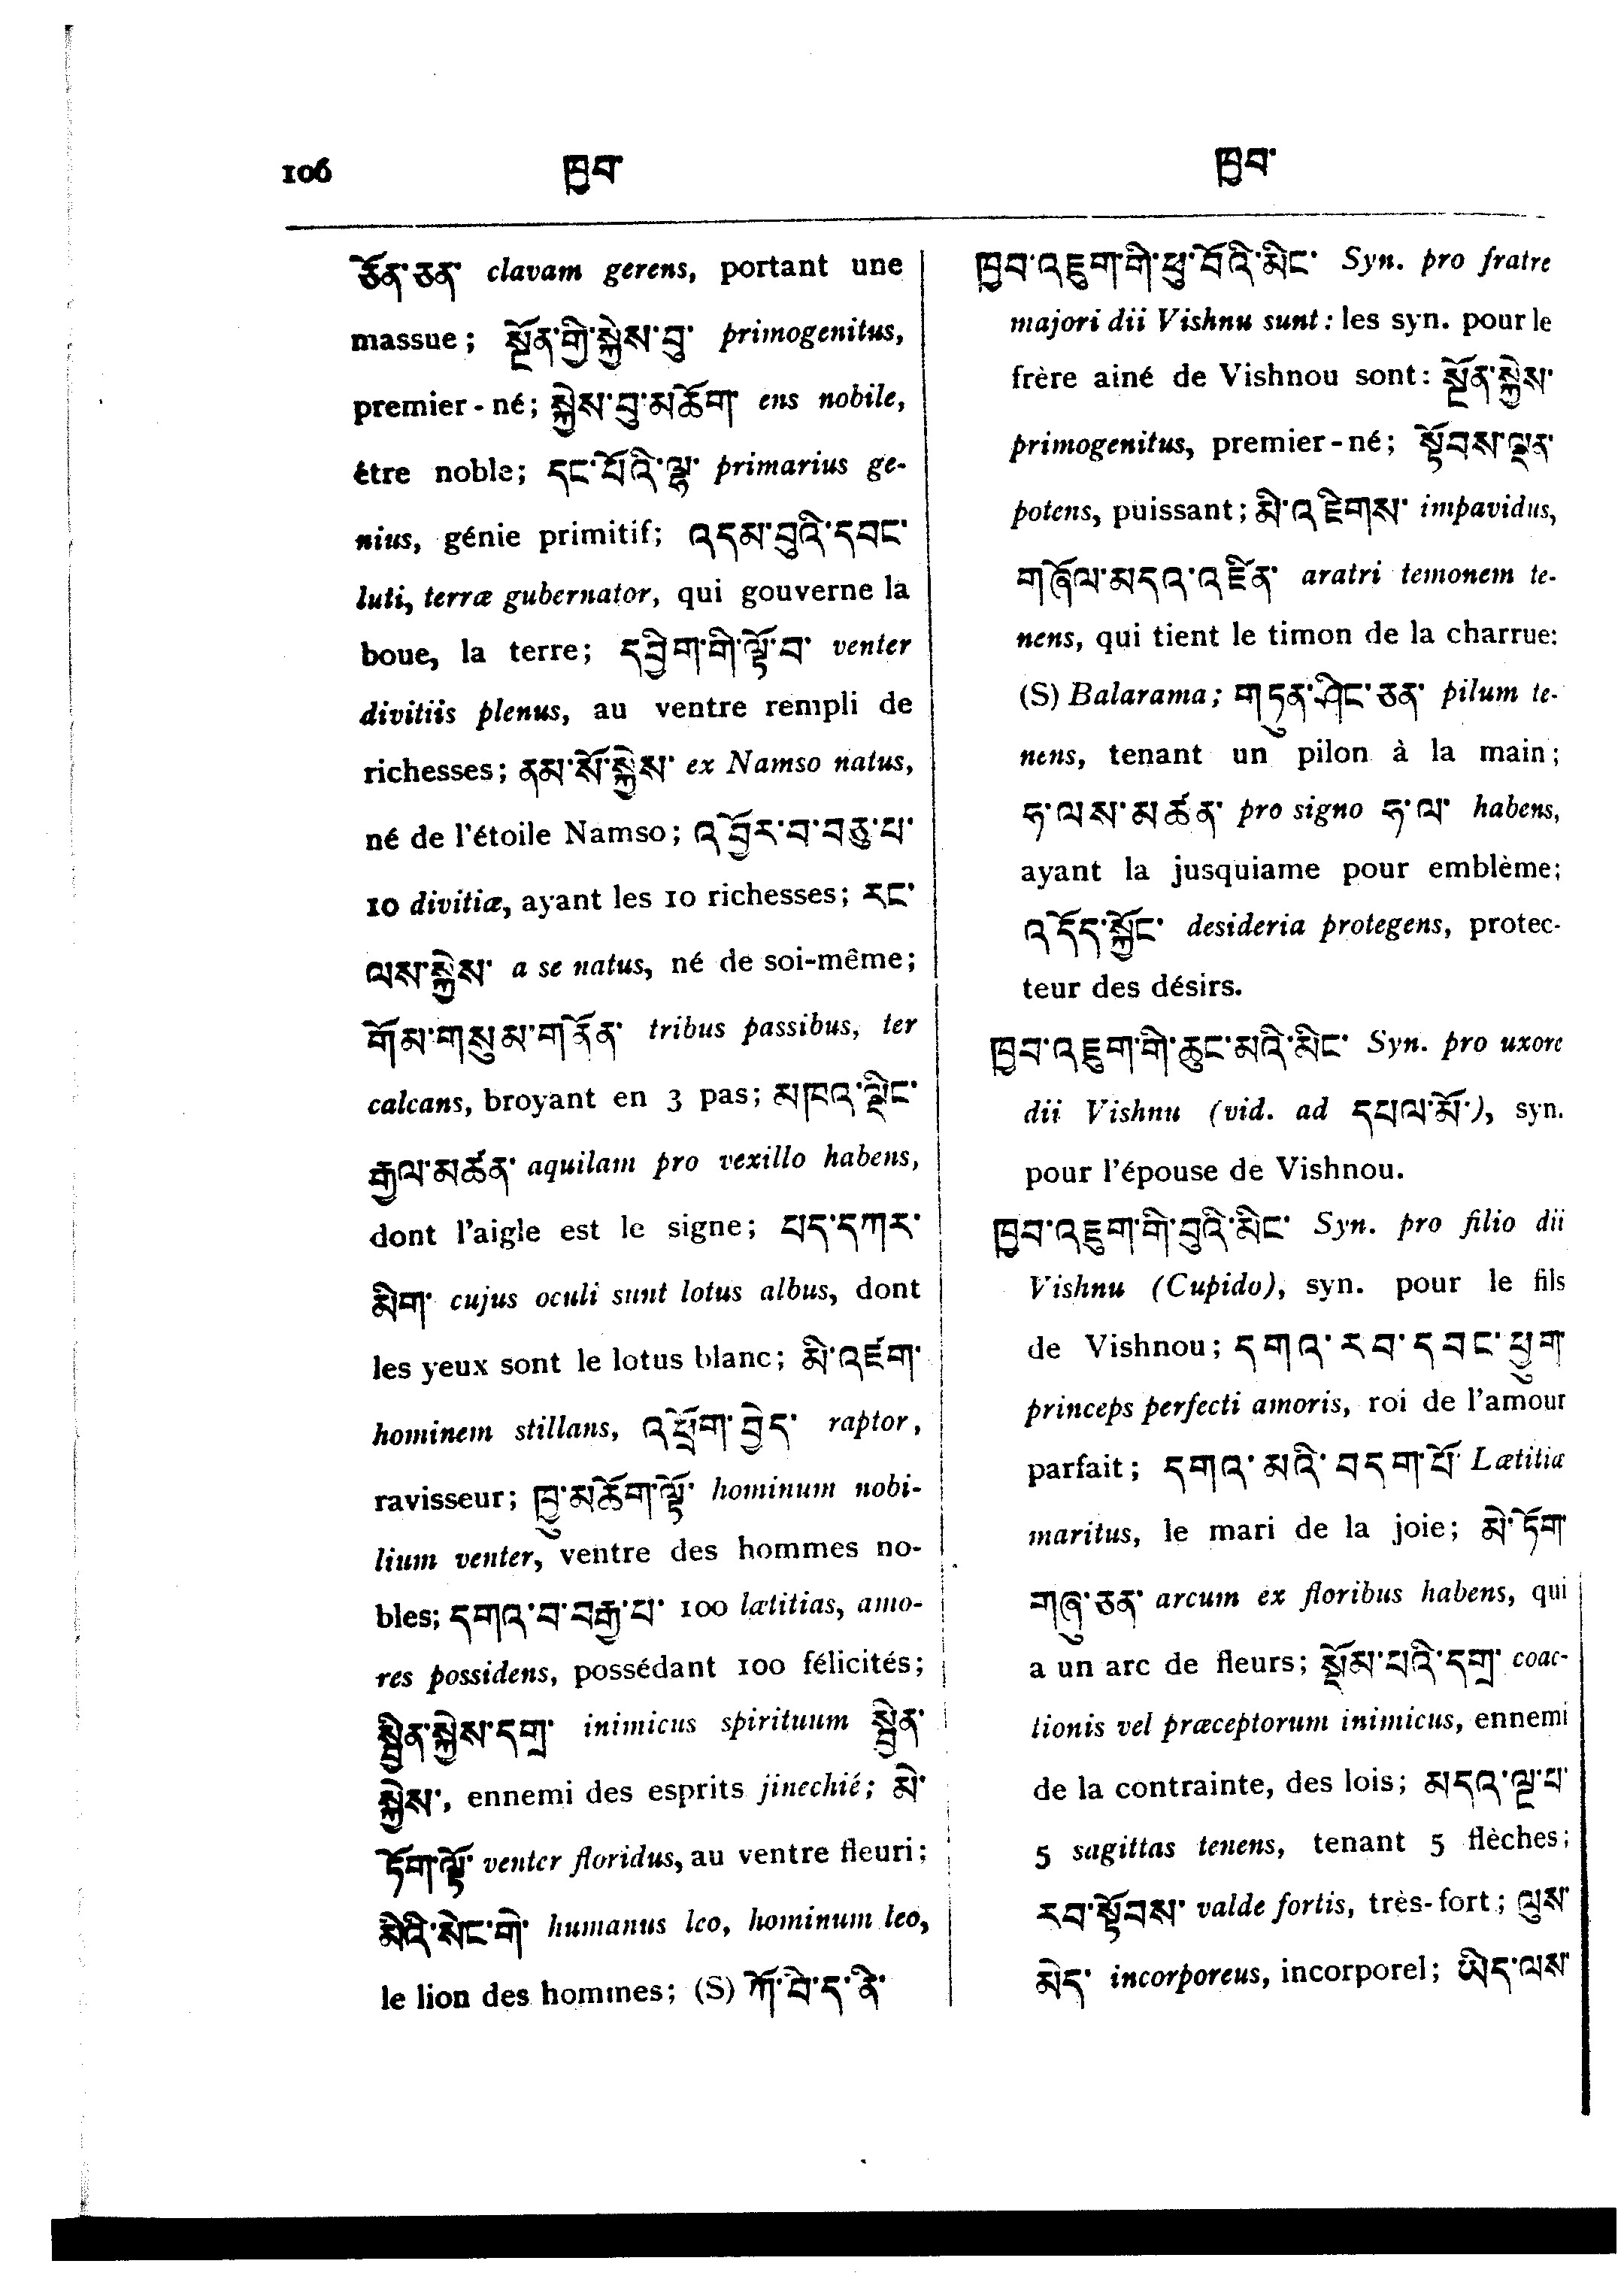 106 ཁྱབ་ ཁྱབ་
ཅོན་ཅན་ clavam gerens, portant une
massue; སྔོན་གྱི་སྐྱེས་བུ་ primogenitus,
premier-né; སྐྱེས་བུ་མཆོག་ ens nobile,
être noble; དང་པོའི་ལྷ་ primarius ge-
nius, génie primitif; འདམ་བུའི་དབང་
luti, terræ gubernator, qui gouverne la
boue, la terre; དབྱིག་གི་ལྟོ་བ་ venter
divitiis plenus, au ventre rempli de
richesses; ནམ་སོ་སྐྱེས་ ex Namso natus,
né de l'étoile Namso; འབྱོར་བ་བཅུ་པ་
10 divitiæ, ayant les 10 richesses; རང་
ལས་སྐྱེས་ a se natus, né de soi-même;
གོམ་གསུམ་གནོན་ tribus passibus, ter
calcans, broyant en 3 pas; མཁའ་ལྡིང་
རྒྱལ་མཚན་ aquilam pro vexillo habens,
dont l'aigle est le signe; པད་དཀར་
མིག་ cujus oculi sunt lotus albus, dont
les yeux sont le lotus blanc; མི་འཛག་
hominem stillans, འཕྲོག་བྱེད་ raptor,
ravisseur; ཁྱུ་མཆོག་ལྟོ་ hominum nobi-
lium venter, ventre des hommes no-
bles; དགའ་བ་བརྒྱ་པ་ 100 lætitias, amo-
res possidens, possédant 100 félicités;
སྦྲིན་སྐྱེས་དགྲ་ inimicus spirituum སྦྲིན་
སྐྱེས་, ennemi des esprits jinechié; མེ་
ཏོག་ལྟོ་ venter floridus, au ventre fleuri;
མིའི་སེང་གེ་ humanus leo, hominum leo,
le lion des hommes; (S) ཀོ་བི་ད་ནི་
ཁྱབ་འཇུག་གི་ཕུ་བོའི་མིང་ Syn. pro fratre
majori dii Vishnu sunt: les syn. pour le
frère ainé de Vishnou sont: སྔོན་སྐྱེས་
primogenitus, premier-né; སྟོབས་ལྡན་
potens, puissant; མི་འཇིགས་ impavidus,
གཤོལ་མདའ་འཛིན་ aratri temonem te-
nens, qui tient le timon de la charrue:
(S) Balarama; གཏུན་ཤིང་ཅན་ pilum te-
nens, tenant un pilon à la main;
ཧ་ལས་མཚན་ pro signo ཧ་ལ་ habens,
ayant la jusquiame pour emblème;
འདོད་སྐྱོང་ desideria protegens, protec-
teur des désirs.
ཁྱབ་འཇུག་གི་ཆུང་མའི་མིང་ Syn. pro uxore
dii Vishnu (vid. ad དཔལ་མོ་), syn.
pour l'épouse de Vishnou.
ཁྱབ་འཇུག་གི་བུའི་མིང་ Syn. pro filio dii
Vishnu (Cupido), syn. pour le fils
de Vishnou; དགའ་རབ་དབང་ཕྱུག་
princeps perfecti amoris, roi de l'amour
parfait; དགའ་མའི་བདག་པོ་ Lætitiæ
maritus, le mari de la joie; མེ་ཏོག་
གཞུ་ཅན་ arcum ex floribus habens, qui
a un arc de fleurs; སྡོམ་པའི་དགྲ་ coac-
tionis vel præceptorum inimicus, ennemi
de la contrainte, des lois; མདའ་ལྔ་པ་
5 sagittas tenens, tenant 5 flèches;
རབ་སྟོབས་ valde fortis, très-fort; ལུས་
མེད་ incorporeus, incorporel; ཡིད་ལས་